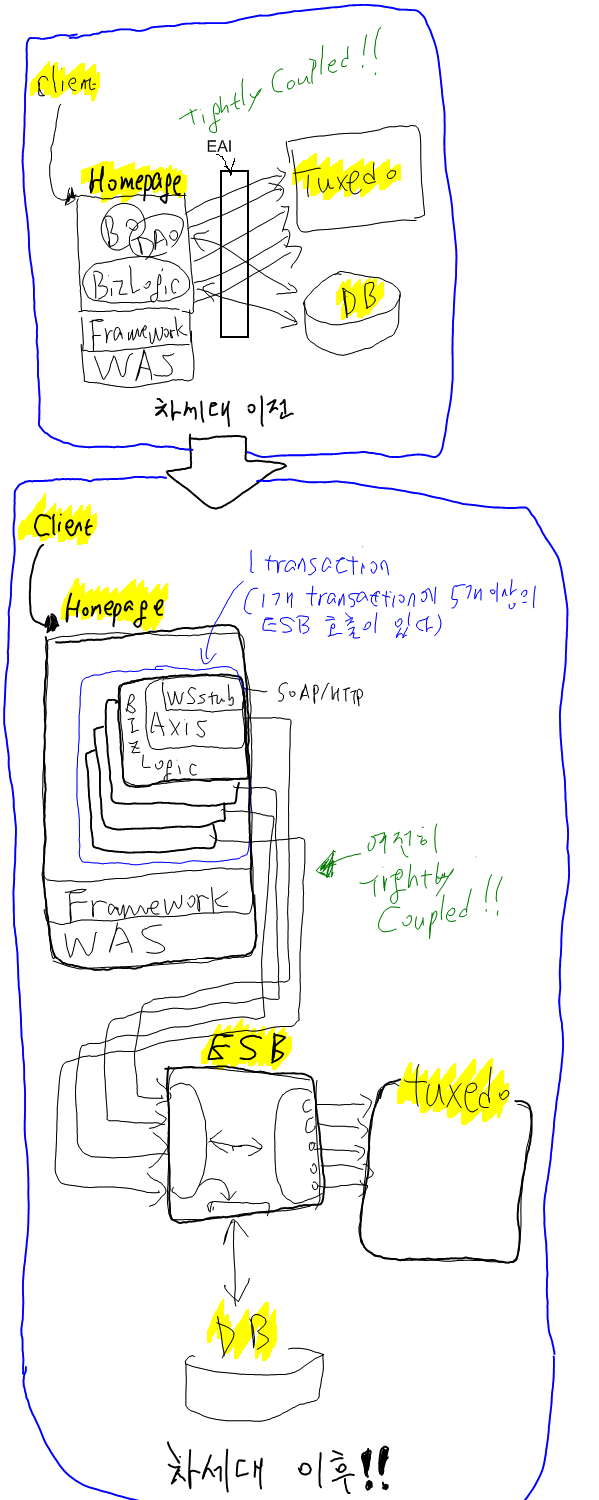 Client
Tightly Coupled!!
EAI
Homepage
Tuxedo
BO
DAO
BizLogic
DB
Framework
WAS
차세대 이전
Client
1 transaction
(1개 transaction에 5개 이상의
ESB 호출이 있다)
Homepage
WSstub
SOAP/HTTP
Axis
BIZ
Logic
여전히
Tightly
Coupled!!
Framework
WAS
ESB
tuxedo
DB
차세대 이후!!